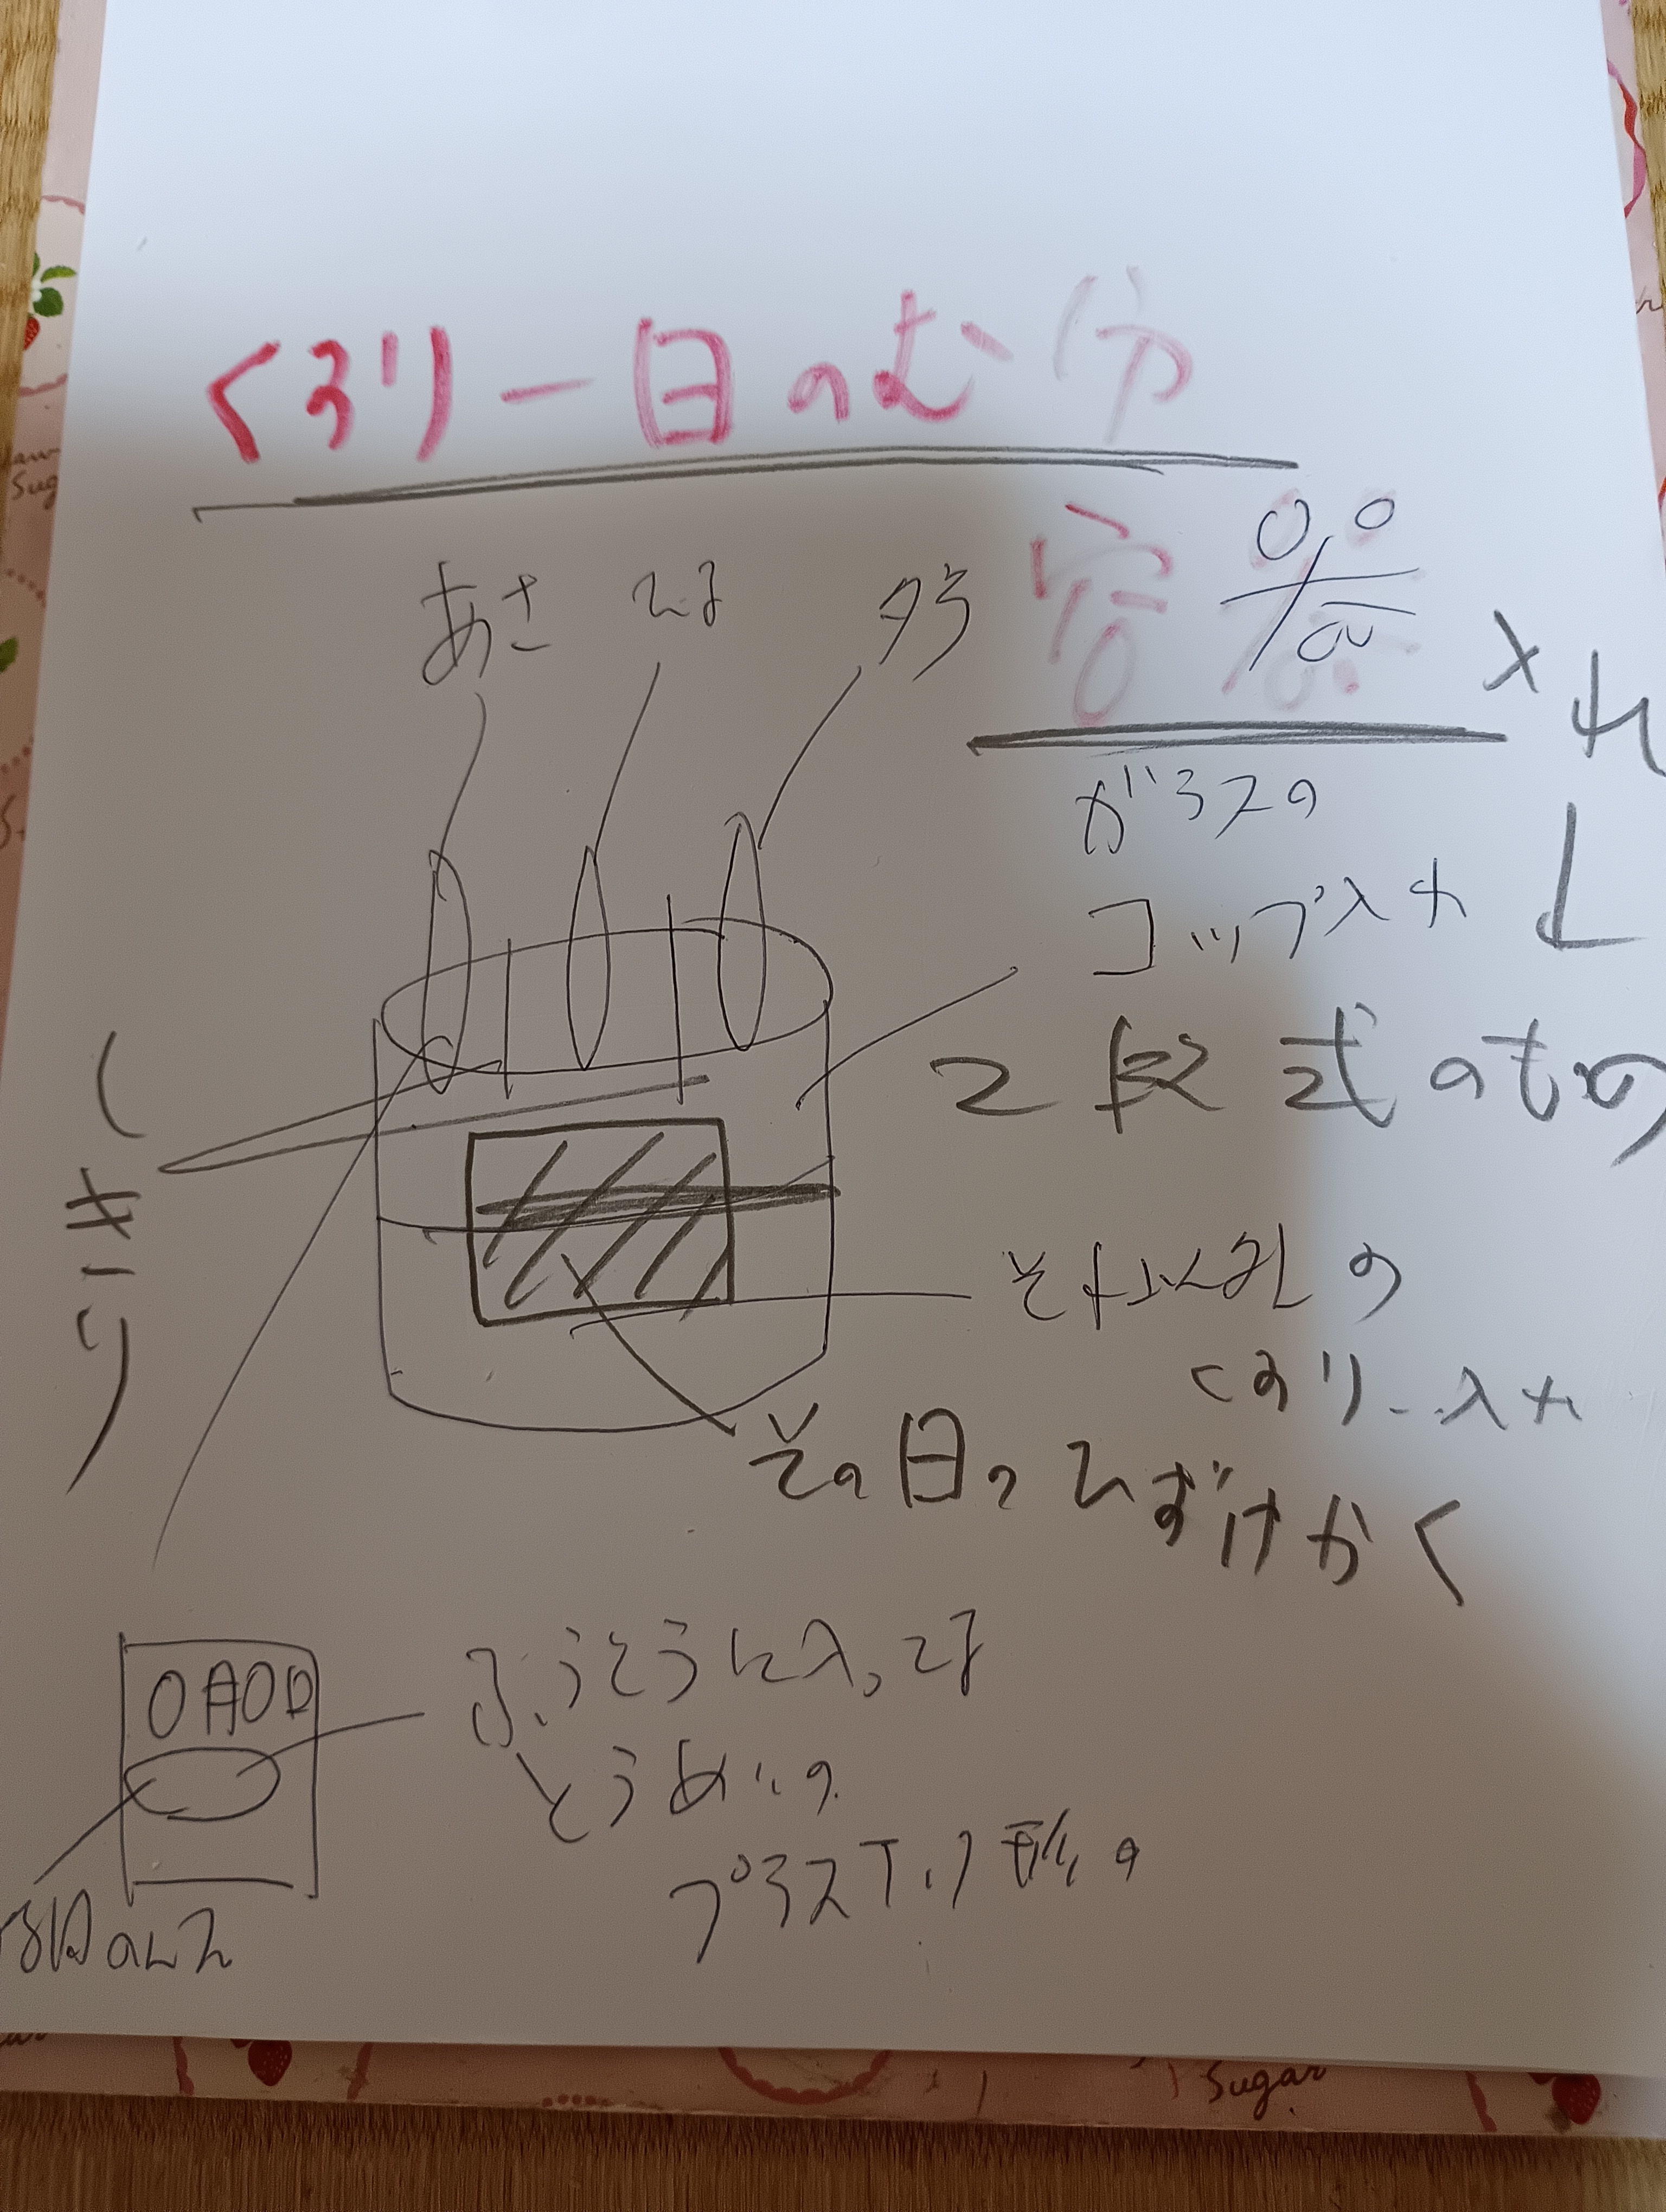 くすり一日のむ分
あさ
ひる
夕方
入れ
ガラスの
コップ入れ
2段式のもの
(しきり)
それ以外の
くすり入れ
その日のひづけかく
ふうとうに入った
とうめいの
プラスチック形の
Sugar